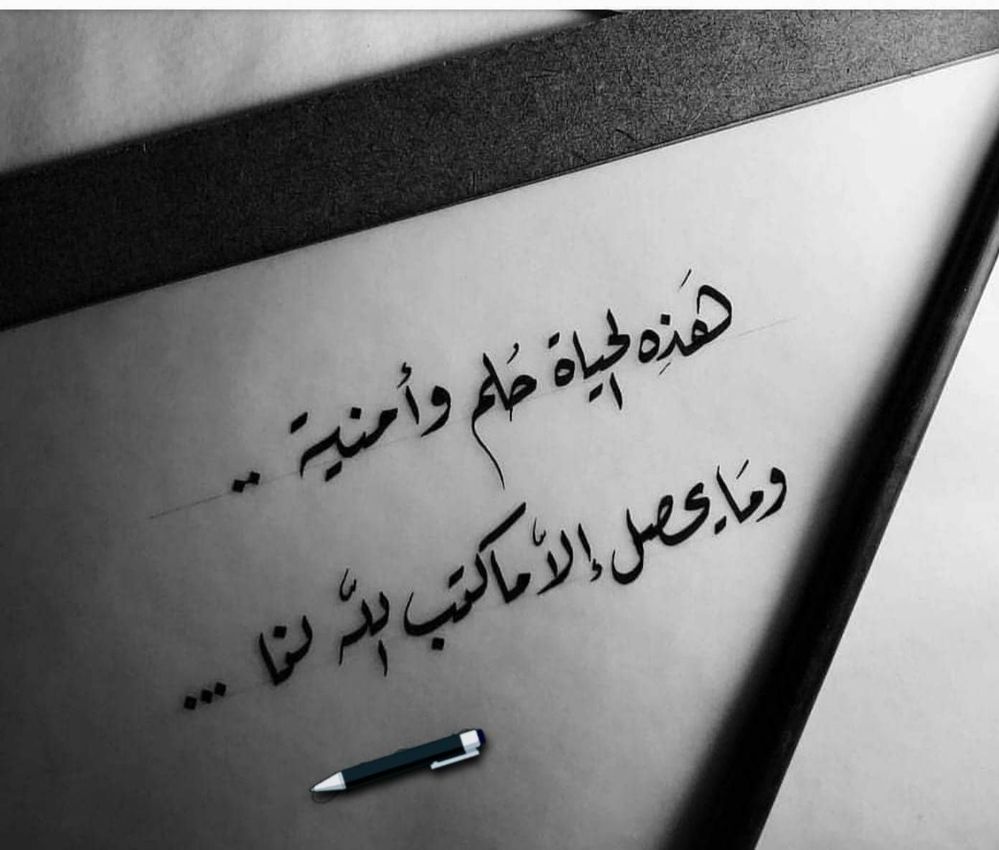 هَذِهِ الحياة حُلم وأمنية ..
ومَا يحصل إلاَّ ما كتب اللَّه لنا ...